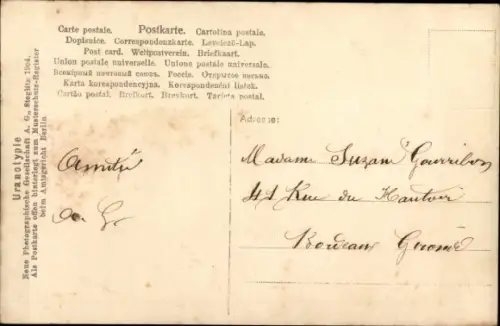 Carte postale. Postkarte. Cartolina postale.
Dopisnice. Correspondenzkarte. Levelező-Lap.
Post card. Weltpostverein. Briefkaart.
Union postale universelle. Unione postale universale.
Всемірный почтовый союзъ. Россія. Открытое письмо.
Karta korespondencyjna. Korespondenční lístek.
Cartão postal. Brefkort. Brevkort. Tarjeta postal.
Uranotypie
Neue Photographische Gesellschaft A. G., Steglitz 1904.
Als Postkarte offen hinterlegt zum Musterschutz-Register
beim Amtsgericht Berlin
Adresse:
Amitié
Madame Suzan
41 Rue du
Bordeaux Gironde